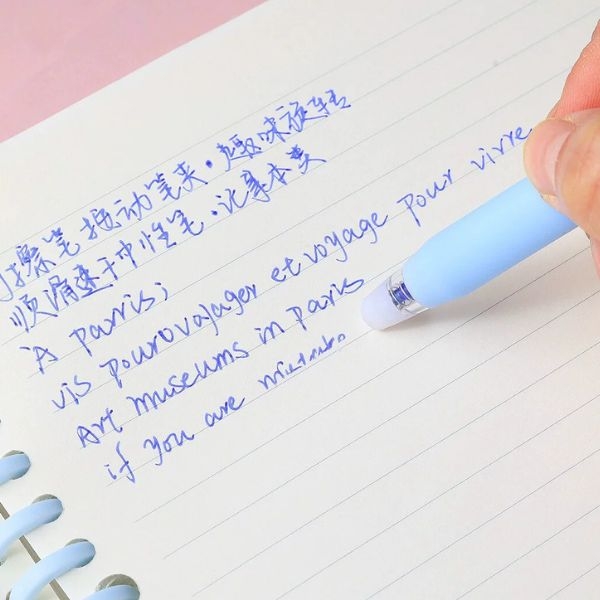 擦笔按动笔夹.趣味旋转
顺滑速干中性笔.记事本类
A parris;
vis pourovajager et voyage pour vivre
Art museums in paris
if you are